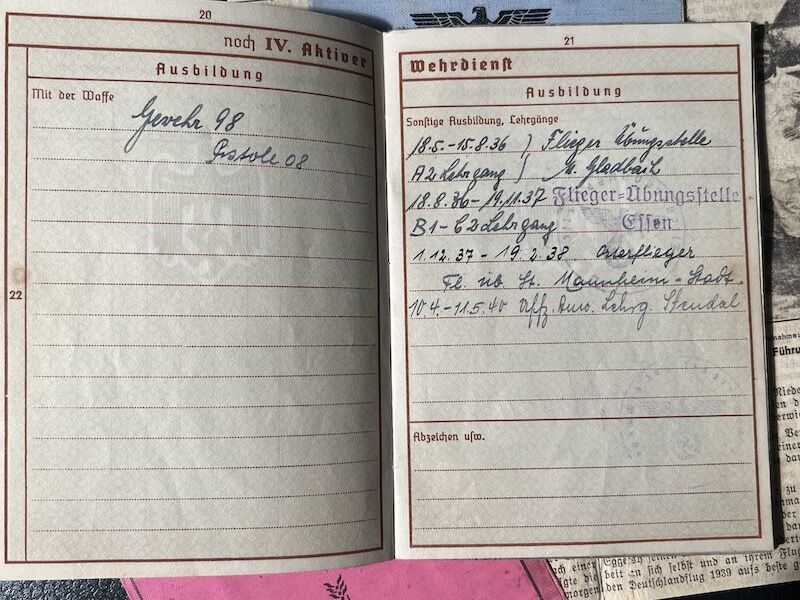 20
noch IV. Aktiver
Ausbildung
Mit der Waffe
Gewehr 98
Pistole 08
22
21
Wehrdienst
Ausbildung
Sonstige Ausbildung, Lehrgänge
18.5.-15.8.36 ) Flieger Übungsstelle
A2 Lehrgang ) M. Gladbach
18.8.36-19.11.37 Flieger-Übungsstelle
B1-C2 Lehrgang Essen
1.12.37-19.2.38
Fl. üb. St. Mannheim-Stadt.
10.4.-11.5.40 Lehrg. Stendal
Abzeichen usw.
Führu
zu
der
beit an sich selbst und an ihrem Flug
den Deutschlandflug 1939 aufs beste
morgen